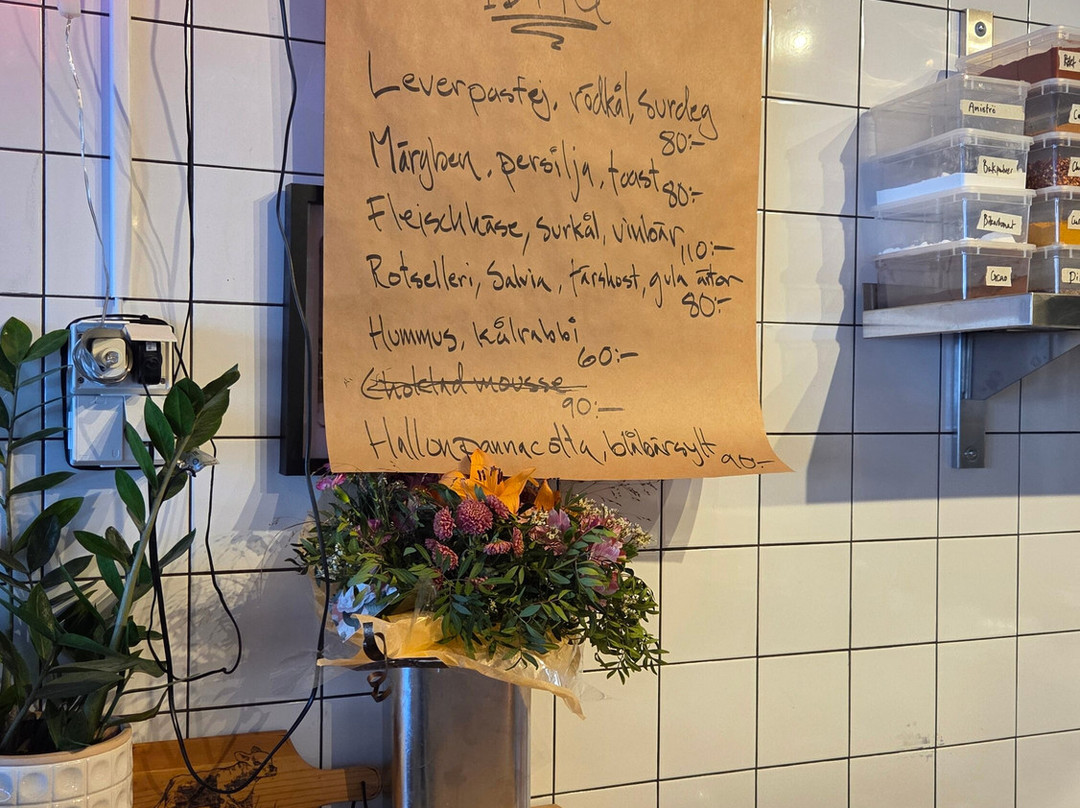 Leverpastej, rödkål, surdeg
80:-
Märgben, persilja, toast
80:-
Fleischkäse, surkål, vinbär
110:-
Rotselleri, Salvia, färskost, gula ärtor
80:-
Hummus, kålrabbi
60:-
Choklad mousse
90:-
Hallonpannacotta, blåbärsylt
90:-
Bakpulver
Bikarbonat
Cacao